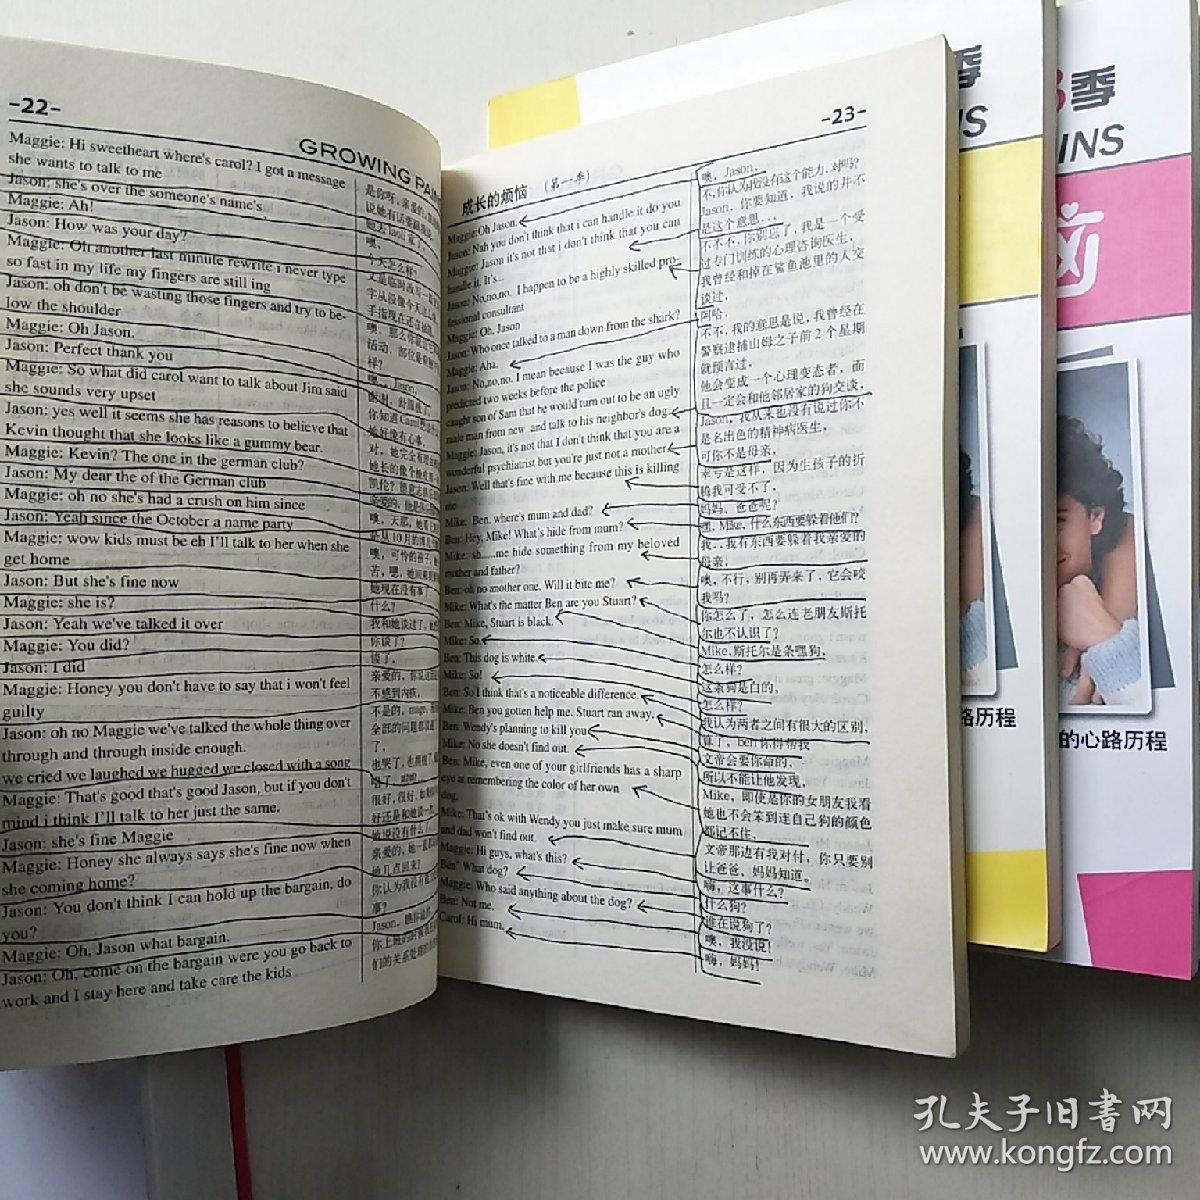 -22-
GROWING PAIN
Maggie: Hi sweetheart where's carol? I got a message
she wants to talk to me
Jason: she's over the someone's name's
Maggie: Ah!
Jason: How was your day?
Maggie: Oh another last minute rewrite i never type
so fast in my life my fingers are still ing
Jason: oh don't be wasting those fingers and try to be-
low the shoulder
Maggie: Oh Jason.
Jason: Perfect thank you
Maggie: So what did carol want to talk about Jim said
she sounds very upset
Jason: yes well it seems she has reasons to believe that
Kevin thought that she looks like a gummy bear.
Maggie: Kevin? The one in the german club?
Jason: My dear the of the German club
Maggie: oh no she's had a crush on him since
Jason: Yeah since the October a name party
Maggie: wow kids must be eh I'll talk to her when she
get home
Jason: But she's fine now
Maggie: she is?
Jason: Yeah we've talked it over
Maggie: You did?
Jason: I did
Maggie: Honey you don't have to say that i won't feel
guilty
Jason: oh no Maggie we've talked the whole thing over
through and through inside enough.
we cried we laughed we hugged we closed with a song
Maggie: That's good that's good Jason, but if you don't
mind i think I'll talk to her just the same.
Jason: she's fine Maggie
Maggie: Honey she always says she's fine now when
she coming home?
Jason: You don't think I can hold up the bargain, do
you?
Maggie: Oh, Jason what bargain.
Jason: Oh, come on the bargain were you go back to
work and I stay here and take care the kids
噢，
个天怎么样？
什么？
你谈了？
谈了，
不感到内疚，
-23-
成长的烦恼 (第一季)
Maggie:Oh Jason.
Jason: Nah you don't think that i can handle it do you
Maggie: Jason it's not that i don't think that you can
handle it. It's...
Jason: No,no,no. I happen to be a highly skilled pro-
fessional consultant
Maggie: Oh, Jason
Jason: Who once talked to a man down from the shark?
Maggie: Aha.
Jason: No,no,no. I mean because I was the guy who
predicted two weeks before the police
caught son of Sam that he would turn out to be an ugly
male man from new and talk to his neighbor's dog.
Maggie: Jason, it's not that I don't think that you are a
wonderful psychiatrist but you're just not a mother
Jason: Well that's fine with me because this is killing
me
Mike: Ben, where's mum and dad?
Ben: Hey, Mike! What's hide from mum?
Mike: sh......me hide something from my beloved
mother and father?
Ben: oh no another one. Will it bite me?
Mike: What's the matter Ben are you Stuart?
Ben: Mike, Stuart is black.
Mike: So.
Ben: This dog is white.
Mike: So!
Ben: So I think that's a noticeable difference.
Mike: Ben you gotten help me. Stuart ran away.
Ben: Wendy's planning to kill you
Mike: No she doesn't find out.
Ben: Mike, even one of your girlfriends has a sharp
eye at remembering the color of her own
dog.
Mike: That's ok with Wendy you just make sure mum
and dad won't find out.
Maggie: Hi guys, what's this?
Ben" What dog?
Maggie: Who said anything about the dog?
Ben: Not me.
Carol: Hi mum.
噢，Jason，
不，你认为我没有这个能力，对吗？
Jason，你要知道，我说的并不
是这个意思...
不不不，你别忘了，我是一个受
过专门训练的心理咨询医生，
我曾经和掉在鲨鱼池里的人交
谈过，
阿哈，
不不，我的意思是说，我曾经在
警察逮捕山姆之子前2个星期
就预言过，
他会变成一个心理变态者，而
且一定会和他邻居家的狗交谈，
Jason，我从来也没有说过你不
是名出色的精神病医生，
可你不是母亲，
幸亏是这样，因为生孩子的折
腾我可受不了，
妈妈，爸爸呢？
嘿，Mike，什么东西要躲着他们？
我..我有东西要躲着我亲爱的
母亲，
噢，不行，别再弄来了，它会咬
我吗？
你怎么了，怎么连老朋友斯托
尔也不认识了？
Mike，斯托尔是条嘿狗，
怎么样？
这条狗是白的，
怎么样？
我认为两者之间有很大的区别，
算了，ben你得帮我
文帝会要你命的，
所以不能让他发现，
Mike，即使是你的女朋友我看
她也不会笨到连自己狗的颜色
都记不住，
文帝那边有我对付，你只要别
让爸爸，妈妈知道。
嗨，这事什么？
什么狗？
谁在说狗了？
噢，我没说！
嗨，妈妈！
季
NS
路历程
3季
INS
的心路历程
孔夫子旧書网
www.kongfz.com